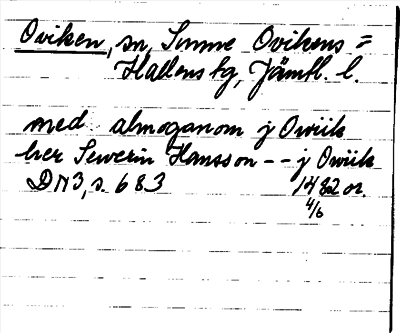 Oviken, sn, Sunne Ovikens =
Hallens tg, Jämtl. l.
med almoganom j Owiik
her Sewerin Hansson -- j Owiik
DN3, s. 683 1482 or.
4/6